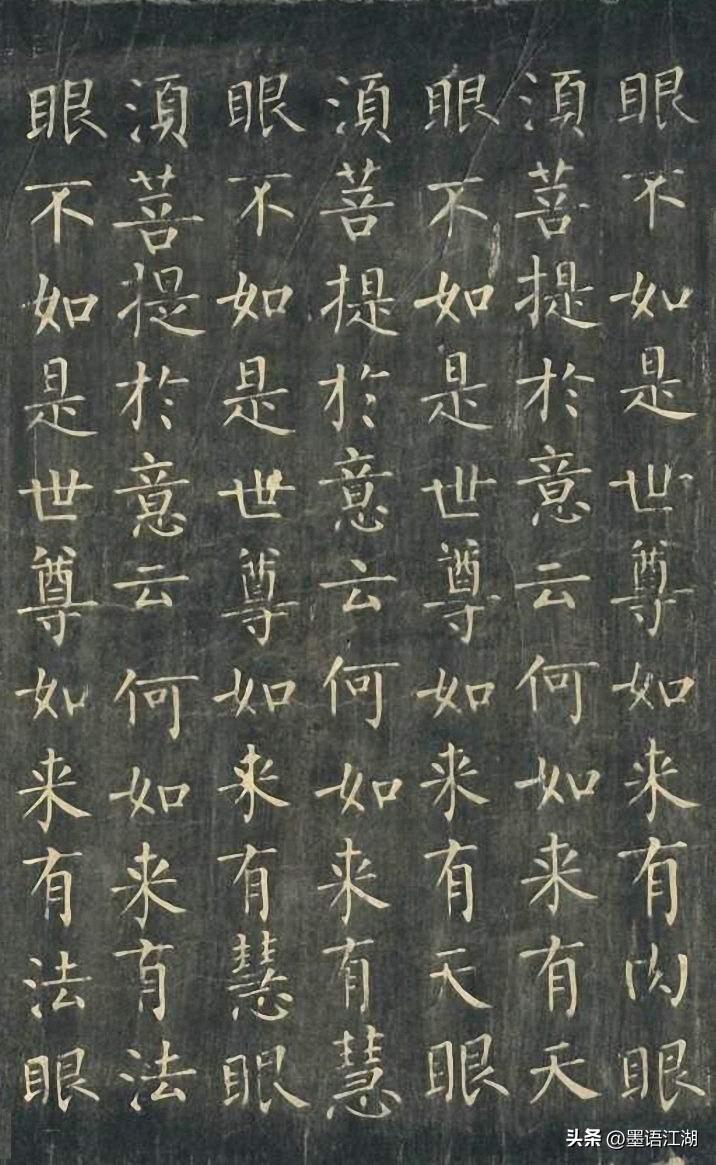 眼不如是世尊如来有肉眼
湏菩提於意云何如来有天
眼不如是世尊如来有天眼
湏菩提於意云何如来有慧
眼不如是世尊如来有慧眼
湏菩提於意云何如来有法
眼不如是世尊如来有法眼
头条 @墨语江湖